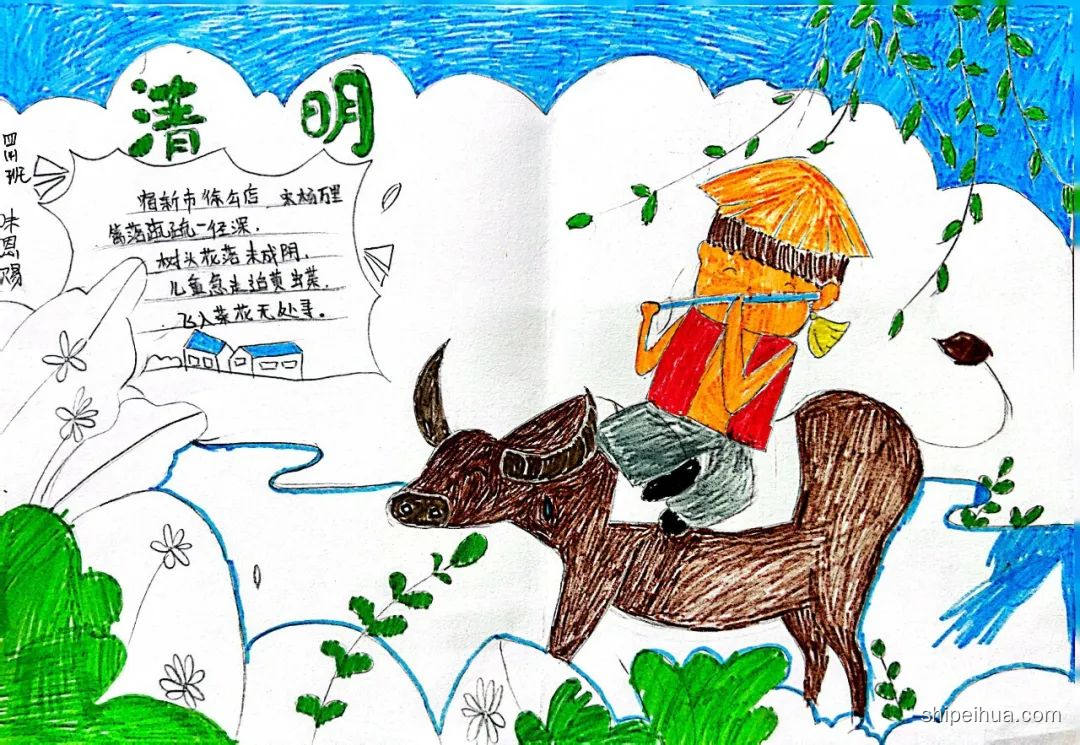 清明
四(4)班
宿新市徐公店 宋杨万里
篱落疏疏一径深,
树头花落未成阴,
儿童急走追黄虫蝶,
飞入菜花无处寻。
恩赐
shipeihua.com